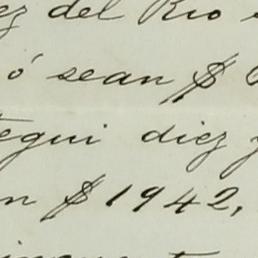 ez del Rio
ó sean $
tegui diez y
n $ 1942,